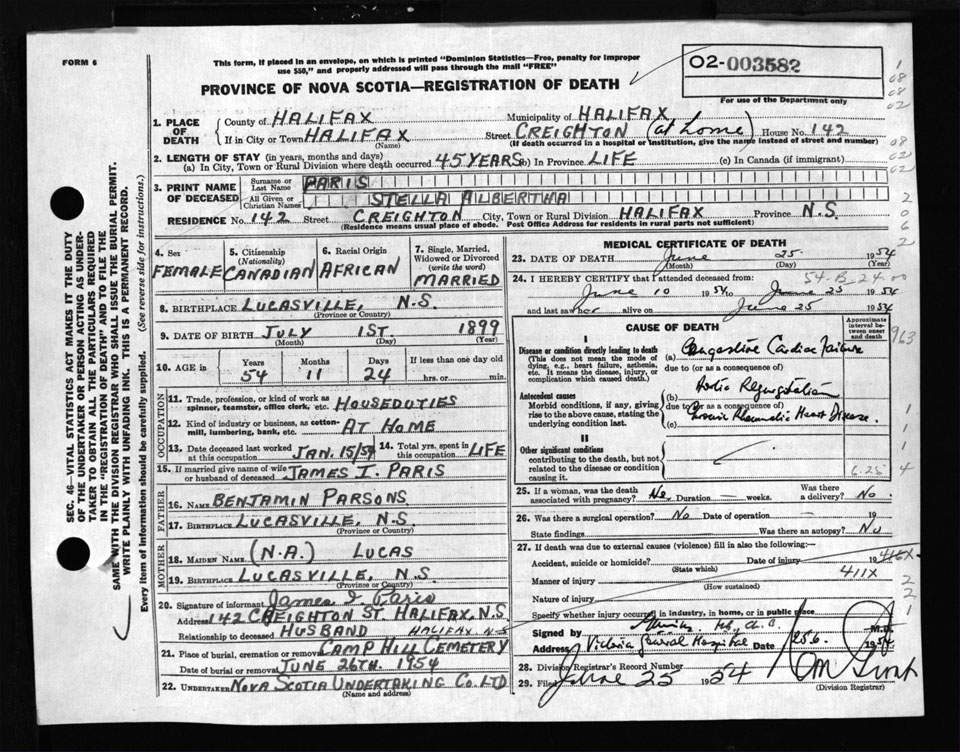 FORM 6
This form, if placed in an envelope, on which is printed "Dominion Statistics—Free, penalty for improper
use $50," and properly addressed will pass through the mail "FREE"
PROVINCE OF NOVA SCOTIA—REGISTRATION OF DEATH
02-003582
For use of the Department only
1. PLACE OF DEATH
County of HALIFAX Municipality of HALIFAX
If in City or Town HALIFAX (Name) Street CREIGHTON (at home) House No. 142
(If death occurred in a hospital or institution, give the name instead of street and number)
2. LENGTH OF STAY (in years, months and days)
(a) In City, Town or Rural Division where death occurred 45 YEARS (b) In Province LIFE (c) In Canada (if immigrant)
3. PRINT NAME OF DECEASED
Surname or Last Name PARIS
All Given or Christian Names STELLA ALBERTHA
RESIDENCE No. 142 Street CREIGHTON City, Town or Rural Division HALIFAX Province N.S.
(Residence means usual place of abode. Post Office Address for residents in rural parts not sufficient)
4. Sex FEMALE
5. Citizenship (Nationality) CANADIAN
6. Racial Origin AFRICAN
7. Single, Married, Widowed or Divorced (write the word) MARRIED
8. BIRTHPLACE LUCASVILLE, N.S.
(Province or Country)
9. DATE OF BIRTH JULY 1ST. 1899
(Month) (Day) (Year)
10. AGE in Years 54 Months 11 Days 24 If less than one day old hrs. or min.
OCCUPATION
11. Trade, profession, or kind of work as spinner, teamster, office clerk, etc. HOUSEDUTIES
12. Kind of industry or business, as cotton-mill, lumbering, bank, etc. AT HOME
13. Date deceased last worked at this occupation JAN. 15/54
14. Total yrs. spent in this occupation LIFE
15. If married give name of wife or husband of deceased JAMES I. PARIS
FATHER
16. NAME BENJAMIN PARSONS
17. BIRTHPLACE LUCASVILLE, N.S
(Province or Country)
MOTHER
18. MAIDEN NAME (N.A.) LUCAS
19. BIRTHPLACE LUCASVILLE, N.S.
(Province or Country)
20. Signature of informant James I Paris
Address 142 CREIGHTON ST. HALIFAX, N.S.
Relationship to deceased HUSBAND HALIFAX N-S
21. Place of burial, cremation or removal CAMP HILL CEMETERY
Date of burial or removal JUNE 26TH. 1954
22. UNDERTAKER NOVA SCOTIA UNDERTAKING CO. LTD
(Name and address)
MEDICAL CERTIFICATE OF DEATH
23. DATE OF DEATH June 25 1954
(Month) (Day) (Year)
24. I HEREBY CERTIFY that I attended deceased from:
54-B-24
June 10 1954 to June 25 1954
and last saw her alive on June 25 1954
CAUSE OF DEATH
Approximate interval between onset and death
I
Disease or condition directly leading to death
(This does not mean the mode of dying, e.g., heart failure, asthenia, etc. It means the disease, injury, or complication which caused death.)
(a) Congestive Cardiac Failure
due to (or as a consequence of)
Antecedent causes
Morbid conditions, if any, giving rise to the above cause, stating the underlying condition last.
(b) Aortic Regurgitation
due to (or as a consequence of)
(c) Chronic Rheumatic Heart Disease.
II
Other significant conditions
contributing to the death, but not related to the disease or condition causing it.
6.25
25. If a woman, was the death associated with pregnancy? No Duration — weeks. Was there a delivery? No.
26. Was there a surgical operation? No Date of operation — 19
State findings Was there an autopsy? No
27. If death was due to external causes (violence) fill in also the following:—
Accident, suicide or homicide? Date of injury 19 416X
(State which)
Manner of injury 411X
(How sustained)
Nature of injury
Specify whether injury occurred in industry, in home, or in public place
Signed by M.D.
Address Victoria General Hospital Date 25.6. 1954
28. Division Registrar's Record Number
29. Filed June 25 1954
(Division Registrar)
SEC. 46—VITAL STATISTICS ACT MAKES IT THE DUTY
OF THE UNDERTAKER OR PERSON ACTING AS UNDER-
TAKER TO OBTAIN ALL THE PARTICULARS REQUIRED
IN THE "REGISTRATION OF DEATH" AND TO FILE THE
SAME WITH THE DIVISION REGISTRAR WHO SHALL ISSUE THE BURIAL PERMIT.
WRITE PLAINLY WITH UNFADING INK. THIS IS A PERMANENT RECORD.
Every item of information should be carefully supplied. (See reverse side for instructions.)
1
08
08
02
08
02
02
2
0
6
2
963
1
1
1
4
2
2